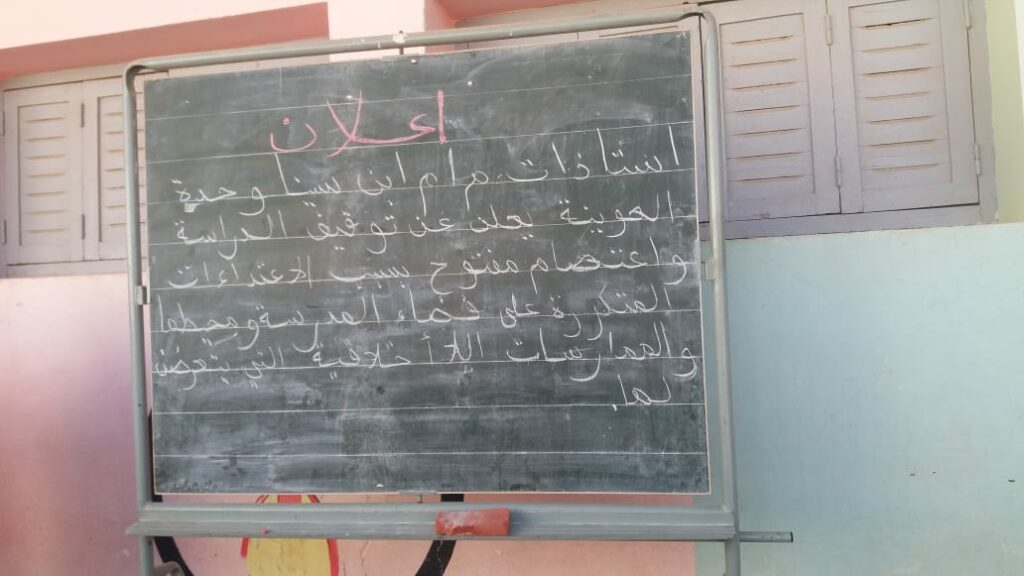 اعلان
استاذات م م ابن سينا وحدة
العوينة يعلن عن توقيف الدراسة
واعتصام مفتوح بسبب الاعتداءات
المتكررة على فضاء المدرسة ومحيطها
والممارسات اللاأخلاقية التي يتعرضن
لها.